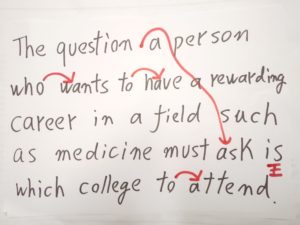 The question a person
who wants to have a rewarding
career in a field such
as medicine must ask is
which college to attend.